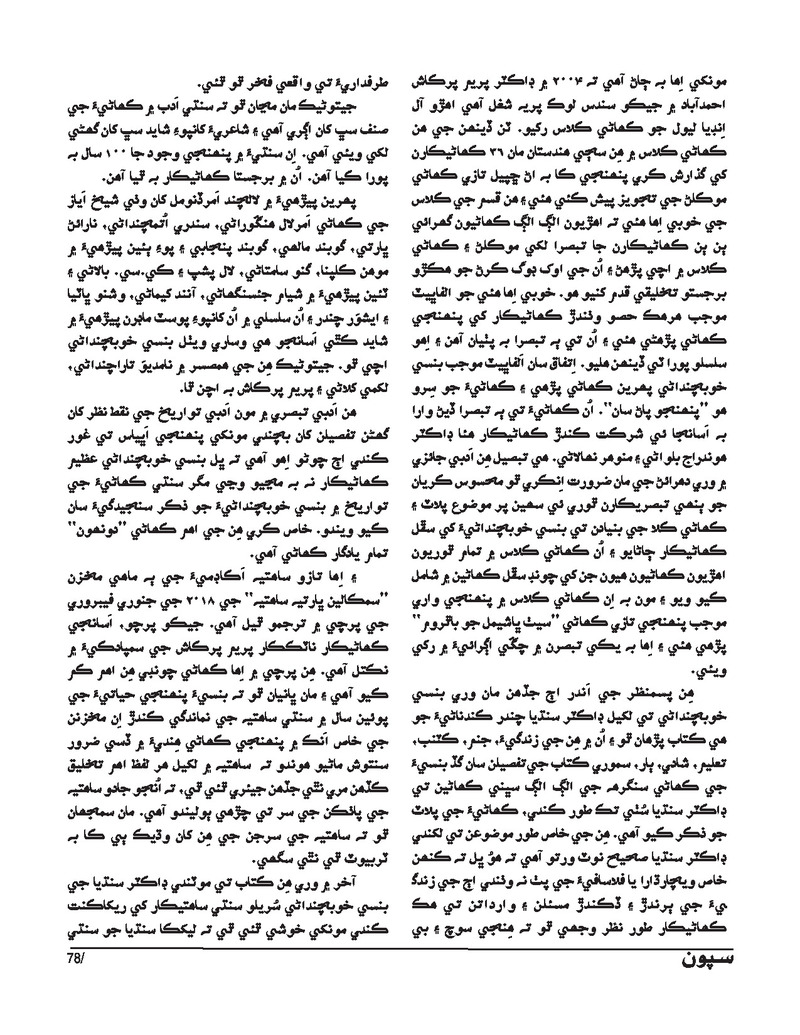 مونکي اِها بہ ڄاڻ آھي تہ ۲۰۰۴ ۾ ڊاڪٽر پريم پرڪاش
احمدآباد ۾ جيڪو سندس لوڪ پريہ شغل آھي اھڙو آل
اِنڊيا ليول جو ڪھاڻي ڪلاس رکيو. ٽن ڏينھن جي ھن
ڪھاڻي ڪلاس ۾ ھِن سڄي ھندستان مان ۳۶ ڪھاڻيڪارن
کي گذارش ڪري پنھنجي ڪا بہ اڻ ڇپيل تازي ڪھاڻي
موڪلڻ جي تجويز پيش ڪئي ھئي ۽ ھن قسم جي ڪلاس
جي خوبي اِھا ھئي تہ اھڙيون الڳ الڳ ڪھاڻيون گھرائي
ٻن ٻن ڪھاڻيڪارن جا تبصرا لکي موڪلڻ ۽ ڪھاڻي
ڪلاس ۾ اچي پڙھڻ ۽ اُن جي اوک ٻوک ڪرڻ جو ھڪڙو
برجستو تخليقي قدم کنيو ھو. خوبي اِھا ھئي جو الفابيٽ
موجب ھرھڪ حصو وٺندڙ ڪھاڻيڪار کي پنھنجي
ڪھاڻي پڙھڻي ھئي ۽ اُن تي ٻہ تبصرا بہ پٺيان آھن ۽ اِھو
سلسلو پورا ٽي ڏينھن ھليو. اِتفاق سان اَلفابيٽ موجب بنسي
خوبچنداڻي پھرين ڪھاڻي پڙھي ۽ ڪھاڻيءَ جو سِرو
ھو ”پنھنجو پاڻ سان“. اُن ڪھاڻيءَ تي ٻہ تبصرا ڏيڻ وارا
بہ اَسانجا ئي شرڪت ڪندڙ ڪھاڻيڪار ھئا ڊاڪٽر
ھوندراج بلواڻي ۽ منوھر نھالاڻي. ھي تبصيل ھِن اَدبي جائزي
۾ وري دھرائڻ جي مان ضرورت اِنڪري ٿو محسوس ڪريان
جو ٻنھي تبصريڪارن ٿوري ئي سھين پر موضوع پلاٽ ۽
ڪھاڻي ڪلا جي بنيادن تي بنسي خوبچنداڻيءَ کي سڦل
ڪھاڻيڪار ڄاڻايو ۽ اُن ڪھاڻي ڪلاس ۾ تمام ٿوريون
اھڙيون ڪھاڻيون ھيون جن کي چونڊ سڦل ڪھاڻين ۾ شامل
ڪيو ويو ۽ مون بہ اِن ڪھاڻي ڪلاس ۾ پنھنجي واري
موجب پنھنجي تازي ڪھاڻي ”سيٺ ڀاشيمل جو باٿروم“
پڙھي ھئي ۽ اِھا بہ يڪي تبصرن ۾ چڱي اڳرائيءَ ۾ رکي
ويئي.
ھِن پسمنظر جي اَندر اڄ جڏھن مان وري بنسي
خوبچنداڻي تي لکيل ڊاڪٽر سنڌيا چندر ڪندناڻيءَ جو
ھي ڪتاب پڙھان ٿو ۽ اُن ۾ ھِن جي زندگيءَ، جنم، ڪٽنب،
تعليم، شادي، ٻار، سموري ڪتاب جي تفصيلن سان گڏ بنسيءَ
جي ڪھاڻي سنگرھہ جي الڳ الڳ سڀني ڪھاڻين تي
ڊاڪٽر سنڌيا سُٺي تڪ طور ڪندي، ڪھاڻيءَ جي پلاٽ
جو ذڪر ڪيو آھي. ھِن جي خاص طور موضوعن تي لکندي
ڊاڪٽر سنڌيا صحيح نوٽ ورتو آھي تہ ھُو ڀل تہ ڪنھن
خاص ويچارڌارا يا فلاسافيءَ جي پٺ نہ وٺندي اڄ جي زندگ
يءَ جي ٻرندڙ ۽ ڏکندڙ مسئلن ۽ وارداتن تي ھڪ
ڪھاڻيڪار طور نظر وجھي ٿو تہ ھِنجي سوچ ۽ بي
طرفداريءَ تي واقعي فخر ٿو ٿئي.
جيتوڻيڪ مان مڃان ٿو تہ سنڌي اَدب ۾ ڪھاڻيءَ جي
صنف سڀ کان اڳري آھي ۽ شاعريءَ کانپوءِ شايد سڀ کان گھڻي
لکي ويئي آھي. اِن سنڌيءَ ۾ پنھنجي وجود جا ۱۰۰ سال بہ
پورا ڪيا آھن. اُن ۾ برجستا ڪھاڻيڪار بہ ٿيا آھن.
پھرين پيڙھيءَ ۾ لالچند اَمرڏنومل کان وٺي شيخ اَياز
جي ڪھاڻي اَمرلال ھنڱوراڻي، سندري اُتمچنداڻي، نارائڻ
ڀارتي، گوبند مالھي، گوبند پنجابي ۽ پوءِ ٻئين پيڙھيءَ ۾
موھن ڪلپنا، گنو سامتاڻي، لال پشپ ۽ ڪي.سي. بالاڻي ۽
ٽئين پيڙھيءَ ۾ شيام جئسنگھاڻي، آنند کيماڻي، وشنو ڀاٽيا
۽ ايشوَر چندر ۽ اُن سلسلي ۾ اُن کانپوءِ پوسٽ ماڊرن پيڙھيءَ ۾
شايد ڪٿي اَسانجو ھي وساري ويٺل بنسي خوبچنداڻي
اچي ٿو. جيتوڻيڪ ھِن جي ھمعصر ۾ نامديو تاراچنداڻي،
لکمي کلاڻي ۽ پريم پرڪاش بہ اچن ٿا.
ھن اَدبي تبصري ۾ مون اَدبي تواريخ جي نقط نظر کان
گھڻن تفصيلن کان بچندي مونکي پنھنجي اَڀياس تي غور
ڪندي اڄ چوڻو اِھو آھي تہ ڀل بنسي خوبچنداڻي عظيم
ڪھاڻيڪار نہ بہ مڃيو وڃي مگر سنڌي ڪھاڻيءَ جي
تواريخ ۾ بنسي خوبچنداڻيءَ جو ذڪر سنجيدگيءَ سان
ڪيو ويندو. خاص ڪري ھِن جي اھم ڪھاڻي ”دونھون“
تمام يادگار ڪھاڻي آھي.
۽ اِھا تازو ساھتيہ اَڪادميءَ جي ٻہ ماھي مخزن
”سمڪالين ڀارتيہ ساھتيہ“ جي ۲۰۱۸ جي جنوري فيبروري
جي پرچي ۾ ترجمو ٿيل آھي. جيڪو پرچو، اَسانجي
ڪھاڻيڪار ناٽڪڪار پريم پرڪاش جي سمپادڪيءَ ۾
نڪتل آھي. ھِن پرچي ۾ اِھا ڪھاڻي چونڊي ھِن اھم ڪم
ڪيو آھي ۽ مان ڀانيان ٿو تہ بنسيءَ پنھنجي حياتيءَ جي
پوئين سال ۾ سنڌي ساھتيہ جي نمائندگي ڪندڙ اِن مخزنن
جي خاص اَنڪ ۾ پنھنجي ڪھاڻي ھِنديءَ ۾ ڏسي ضرور
سنتوش ماڻيو ھوندو تہ ساھتيہ ۾ لکيل ھر لفظ اھم تخليق
ڪڏھن مري نٿي جڏھن جيئري ٿئي ٿي، تہ اُنجو جادو ساھتيہ
جي پاٺڪن جي سر تي چڙھي ٻوليندو آھي. مان سمجھان
ٿو تہ ساھتيہ جي سرجن جي ھِن کان وڌيڪ ٻي ڪا بہ
ٽربيوٽ ٿي نٿي سگھي.
آخر ۾ وري ھِن ڪتاب تي موٽندي ڊاڪٽر سنڌيا جي
بنسي خوبچنداڻي سُريلو سنڌي ساھتيڪار کي ريکانڪت
ڪندي مونکي خوشي ٿئي ٿي تہ ليکڪا سنڌيا جو سنڌي
78/
سپون